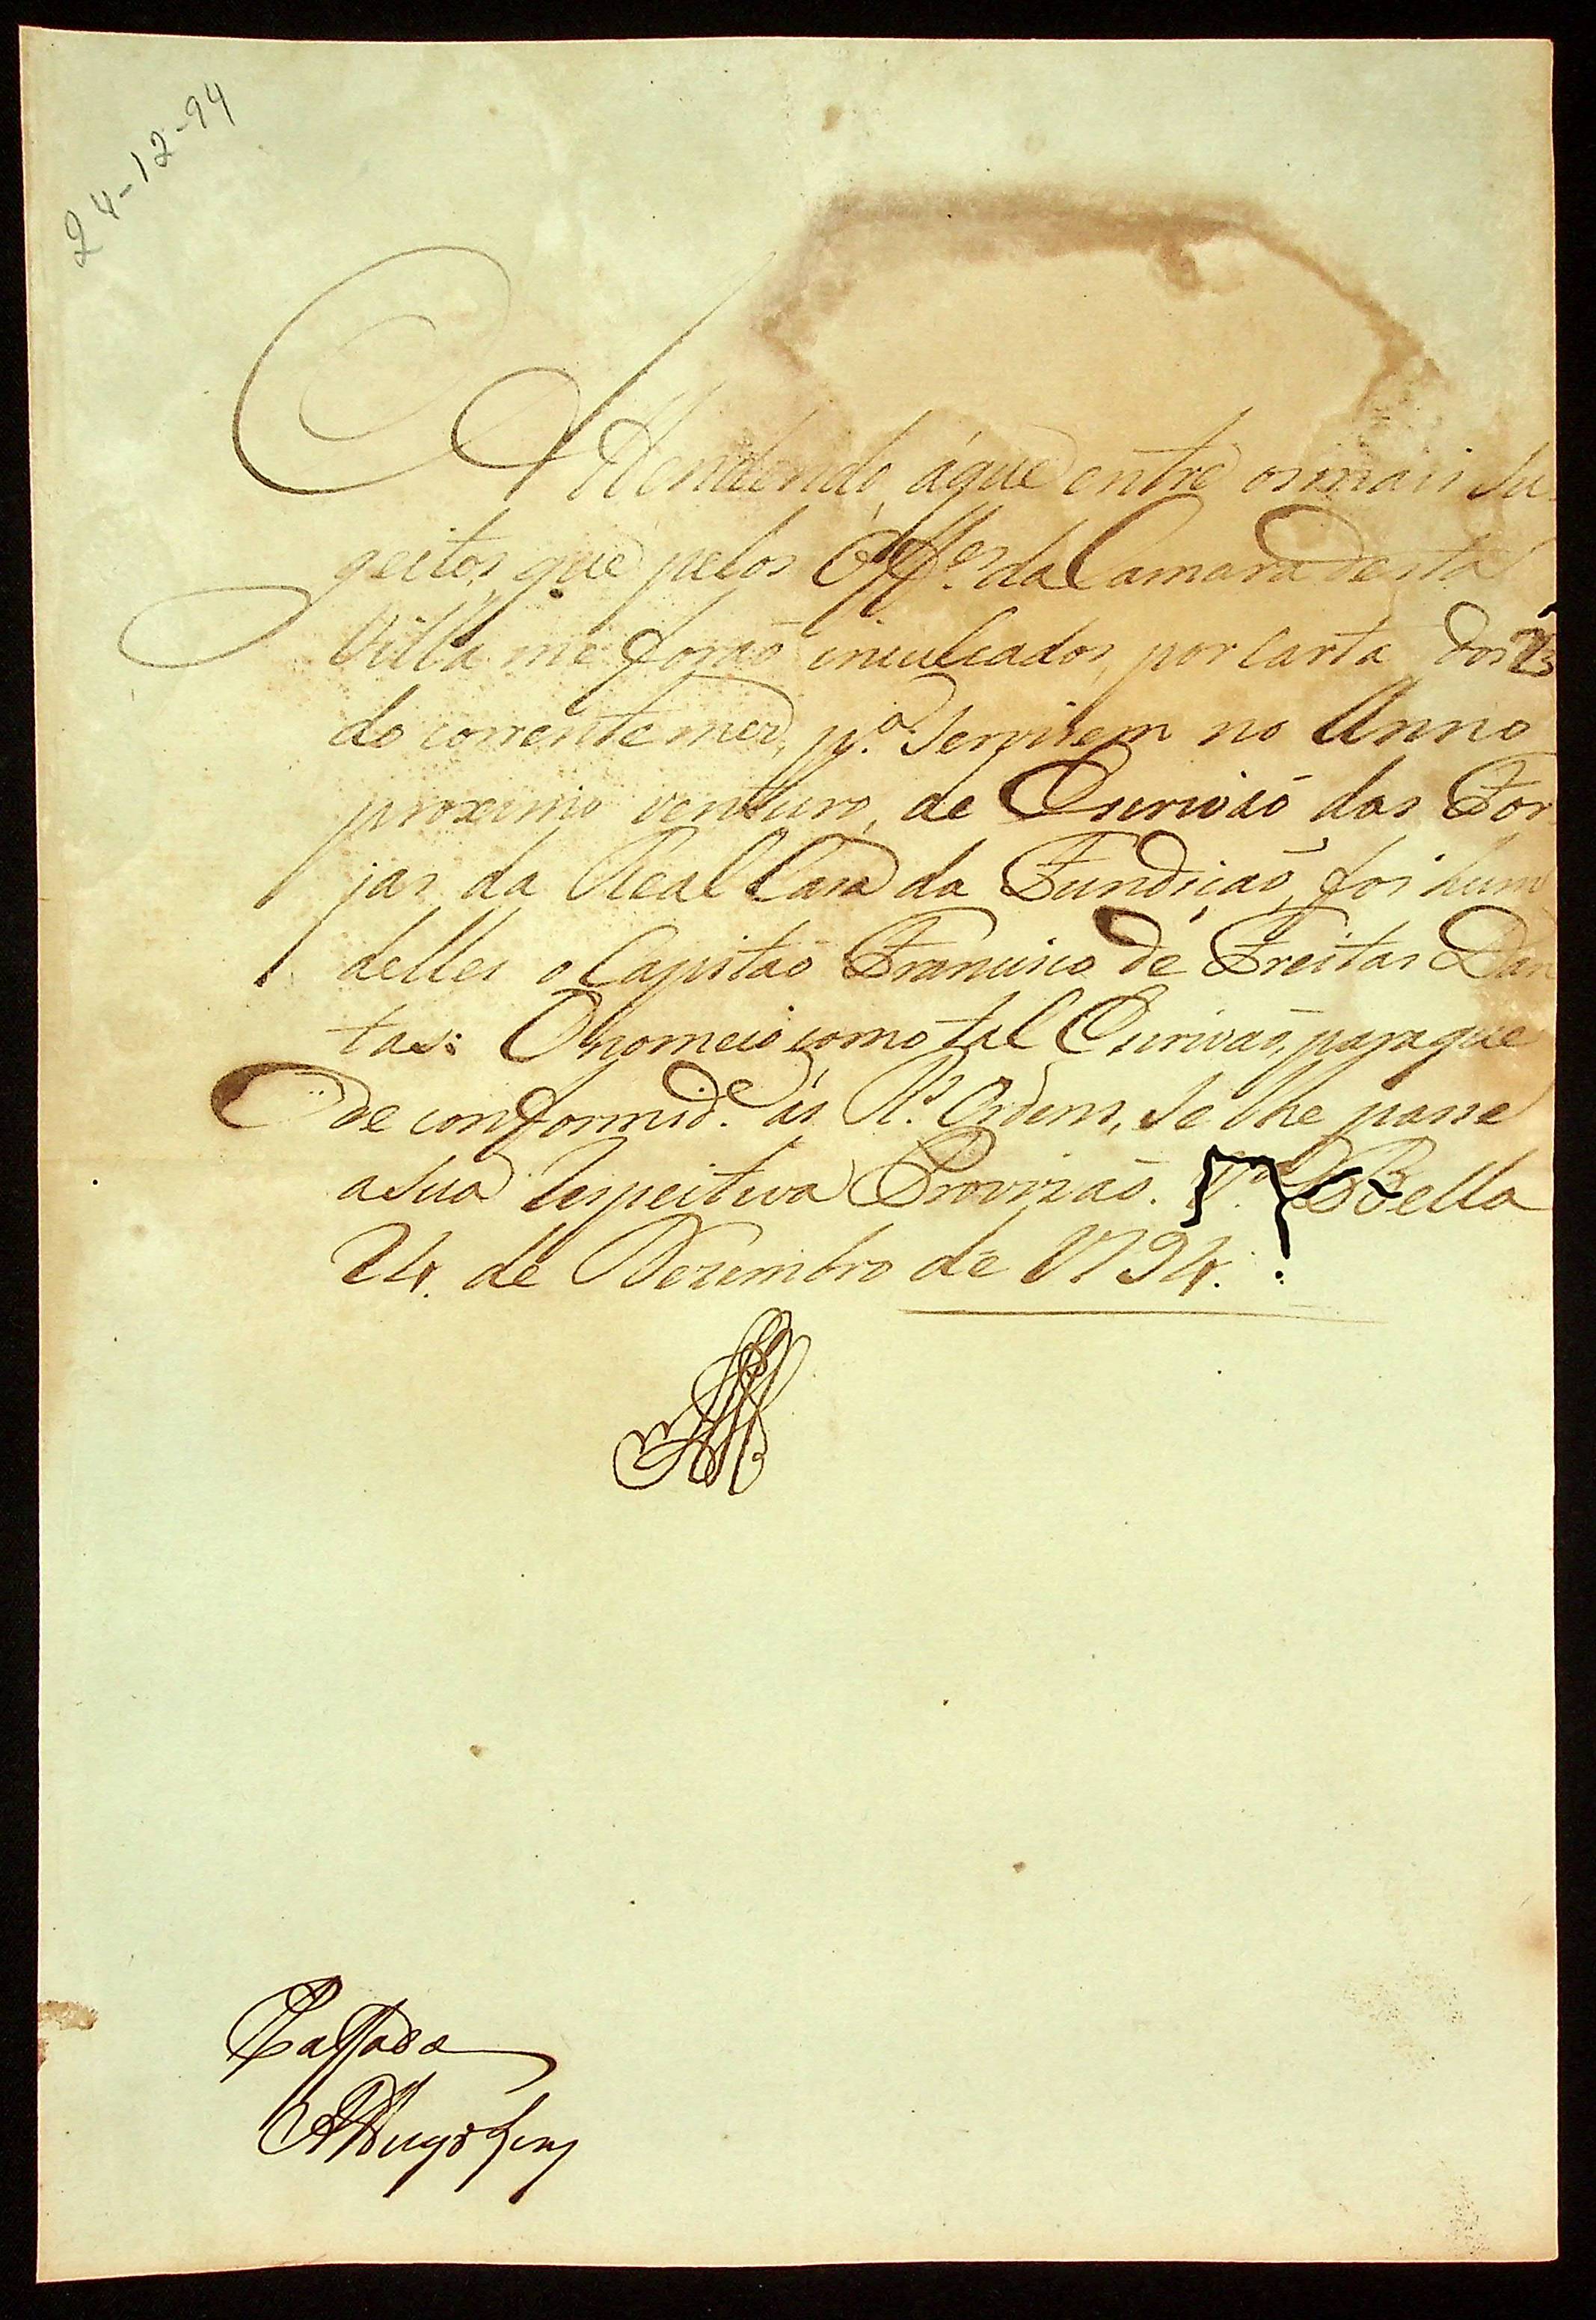 24-12-94
Attendendo áque entre osmais su
geitos, que pelos Off.es da Camara desta
Villa me foraõ inculcados, por carta dos 23
do corrente mez, p.a servirem no Anno
proximo venturo, de Escrivaõ das For
jas da Real Casa da Fundiçaõ, foi hum
delles o Capitaõ Francisco de Freitas Dan
tas: O nomeio como tal Escrivaõ, paraque
de conformid.e ás R.s Ordens, se lhe passe
a sua respectiva Provizaõ. V.a Bella
24. de Dezembro de 1794.
Passada